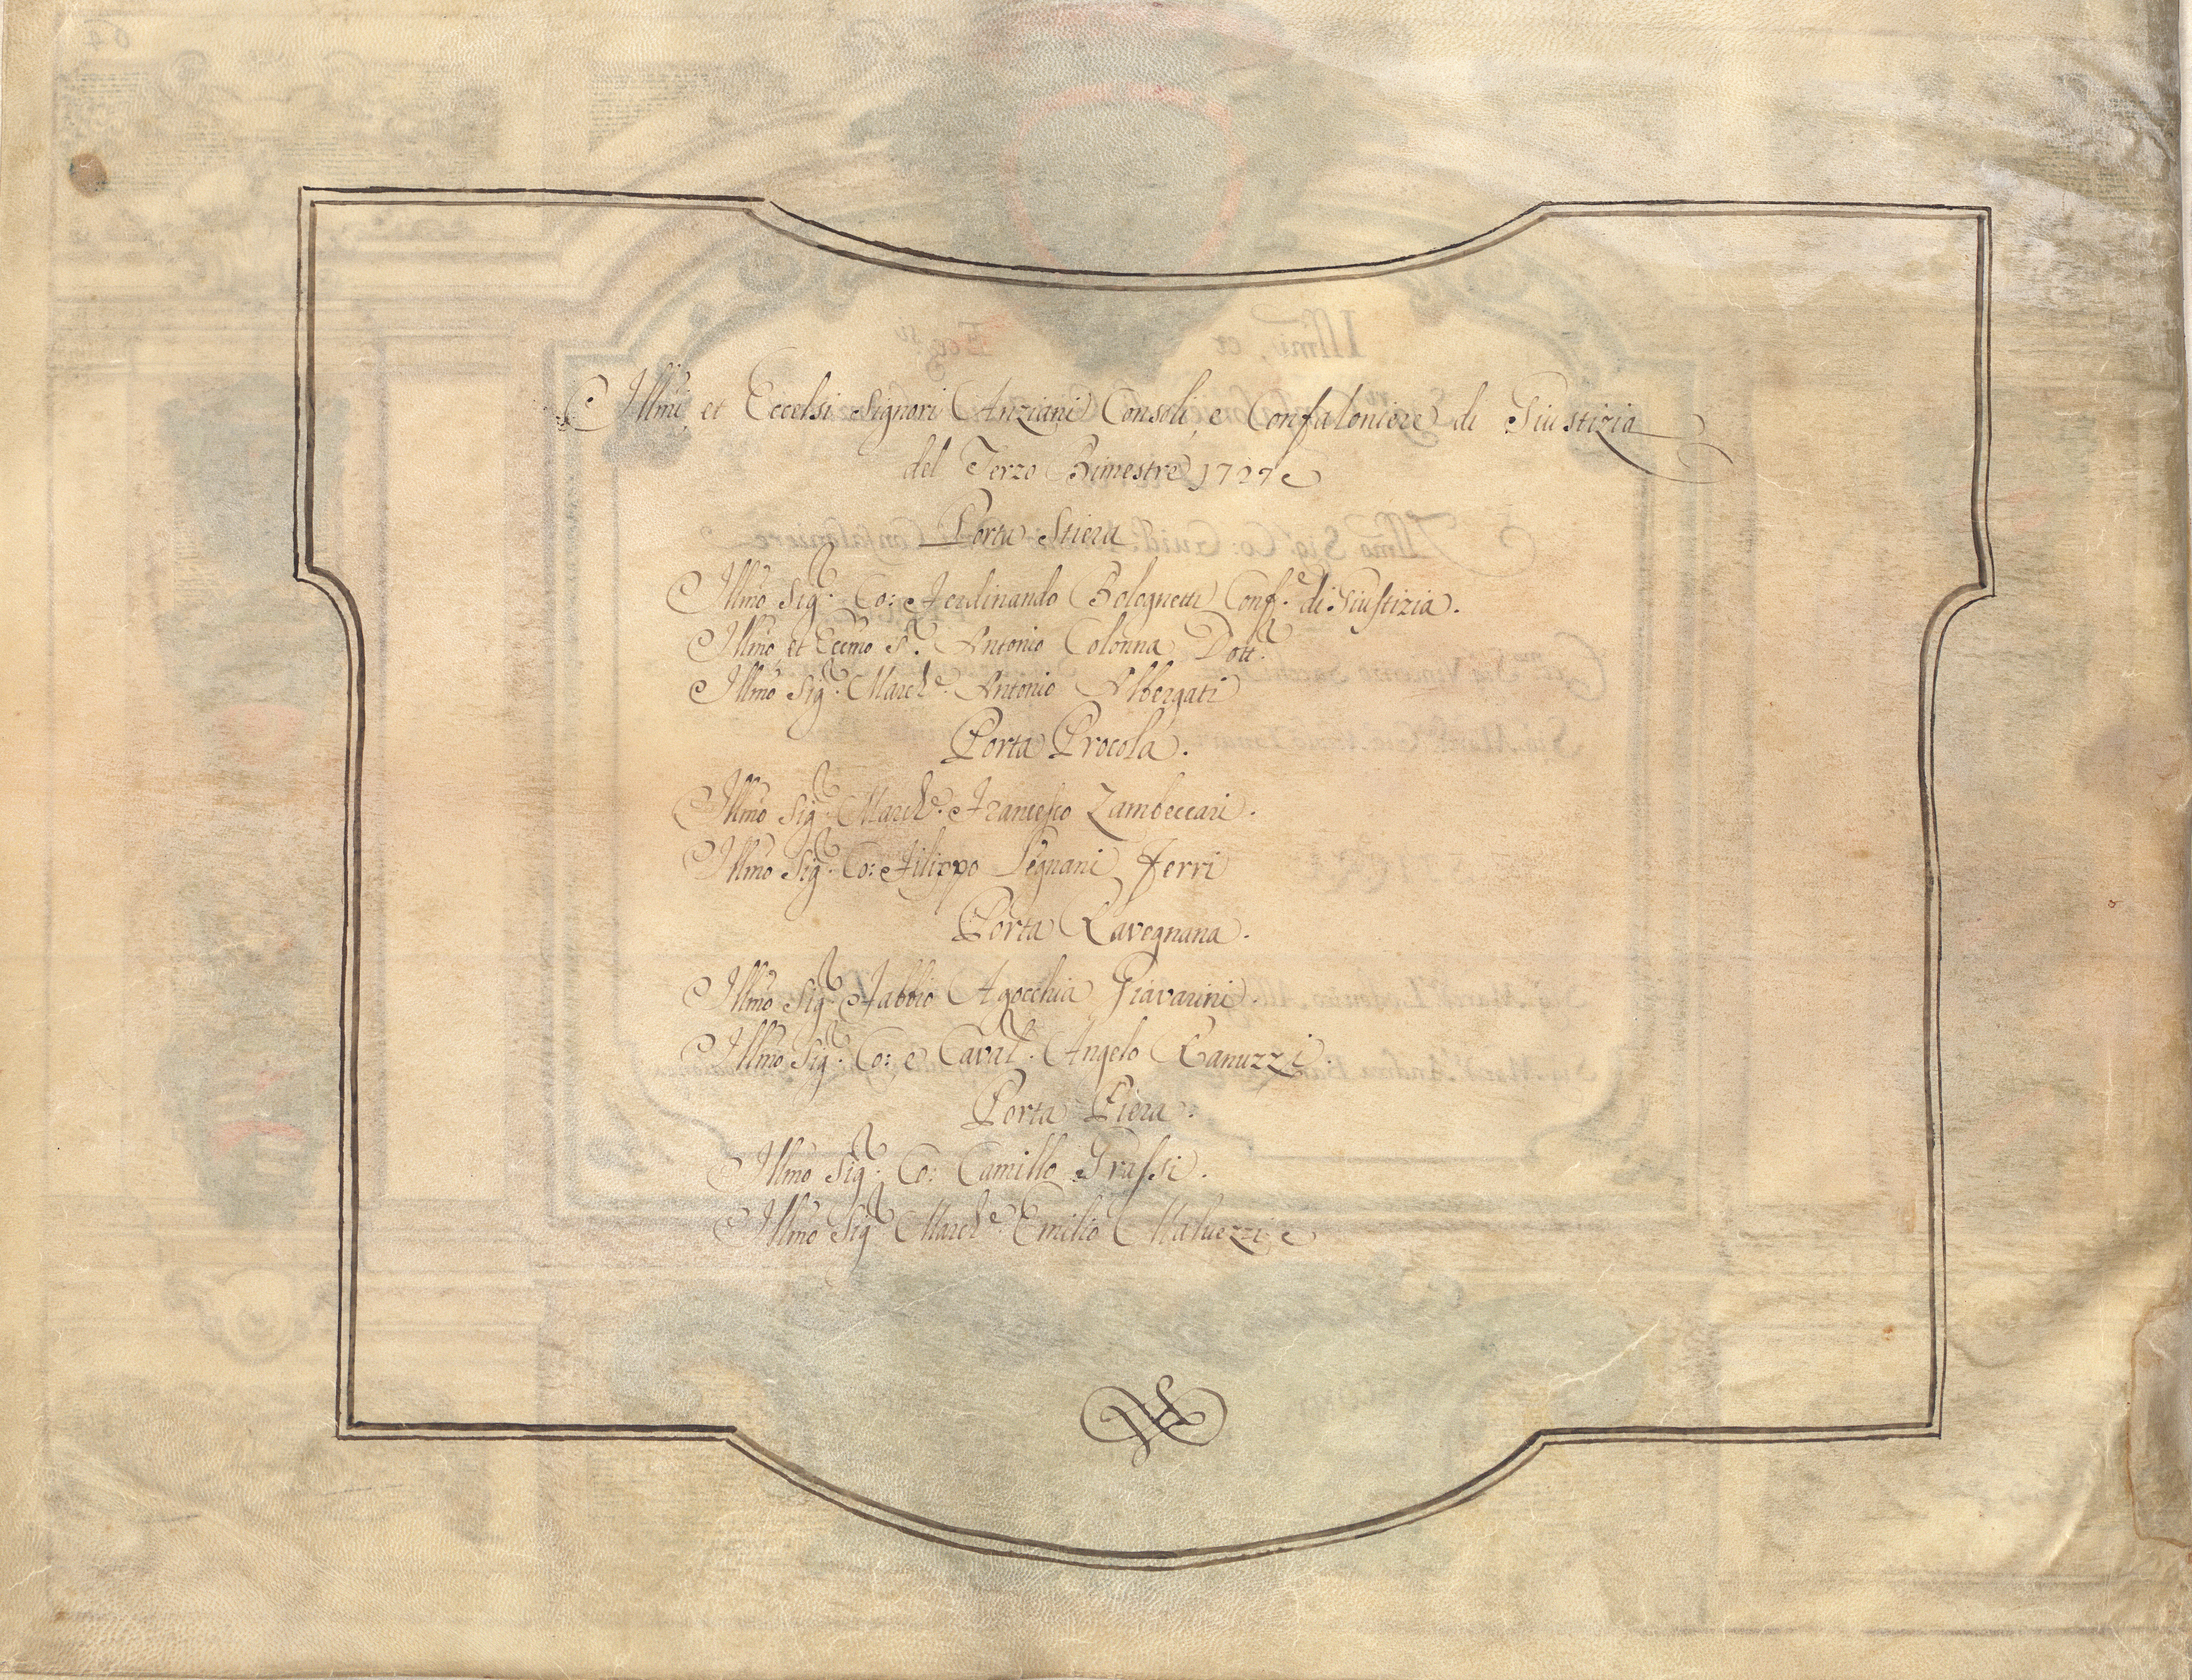 Illmi, et Eccelsi Signori Anziani Consoli, e Confaloniere di Giustizia
del Terzo Bimestre 1727
Porta Stiera
Illmo Sig.r Co: Ferdinando Bolognetti Conf.e di Giustizia.
Illmo et Eccmo S.r Antonio Colonna Dott.r
Illmo Sig.r March.e Antonio Albergati
Porta Procola.
Illmo Sig.r March.e Francesco Zambeccari.
Illmo Sig.r Co: Filippo Segnani Ferri
Porta Ravegnana.
Illmo Sig.r Fabbio Agocchia Giavarini.
Illmo Sig.r Co: e Caval.r Angelo Ranuzzi.
Porta Piera.
Illmo Sig.r Co: Camillo Grassi.
Illmo Sig.r March.e Emilio Maluezzi